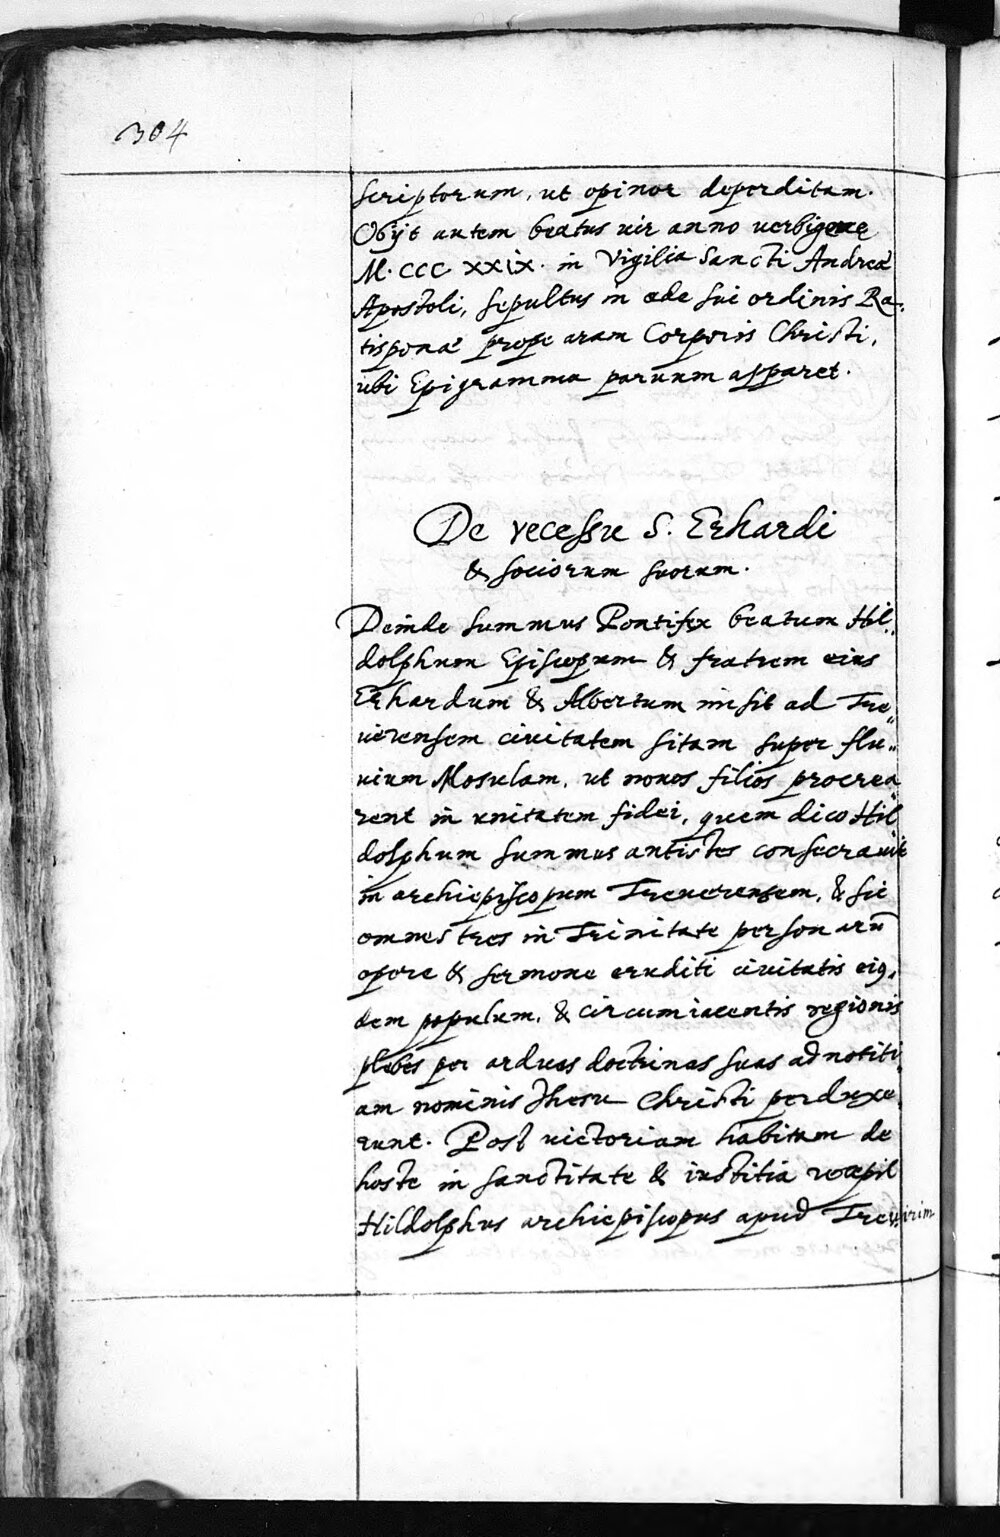 304
scriptorum, ut opinor deperditam.
Obijt autem beatus uir anno uerbigenę
M. CCC XXIX. in Vigilia Sancti Andreæ
Apostoli, sepultus in æde sui ordinis Ra„
tisponæ prope aram Corporis Christi,
ubi Epigramma paruum apparet.
De recessu S. Erhardi
& sociorum suorum.
Deinde summus Pontifex beatum Hil„
dolphum Episcopum & fratrem eius
Erhardum & Albertum misit ad Tre„
uerensem ciuitatem sitam super flu„
uium Mosulam, ut nouos filios procrea„
rent in unitatem fidei, quem dico Hil
dolphum summus antistes consecrauit
in archiepiscopum Treuerensem, & sic
omnes tres in Trinitate personarū
opere & sermone eruditi ciuitatis eiq„
dem populum, & circumiacentis regionis
plebes per arduas doctrinas suas ad notiti„
am nominis Jhesu Christi perduxe„
runt. Post uictoriam habitam de
hoste in sanctitate & iustitia recepit
Hildolphus archiepiscopus apud Treuirim